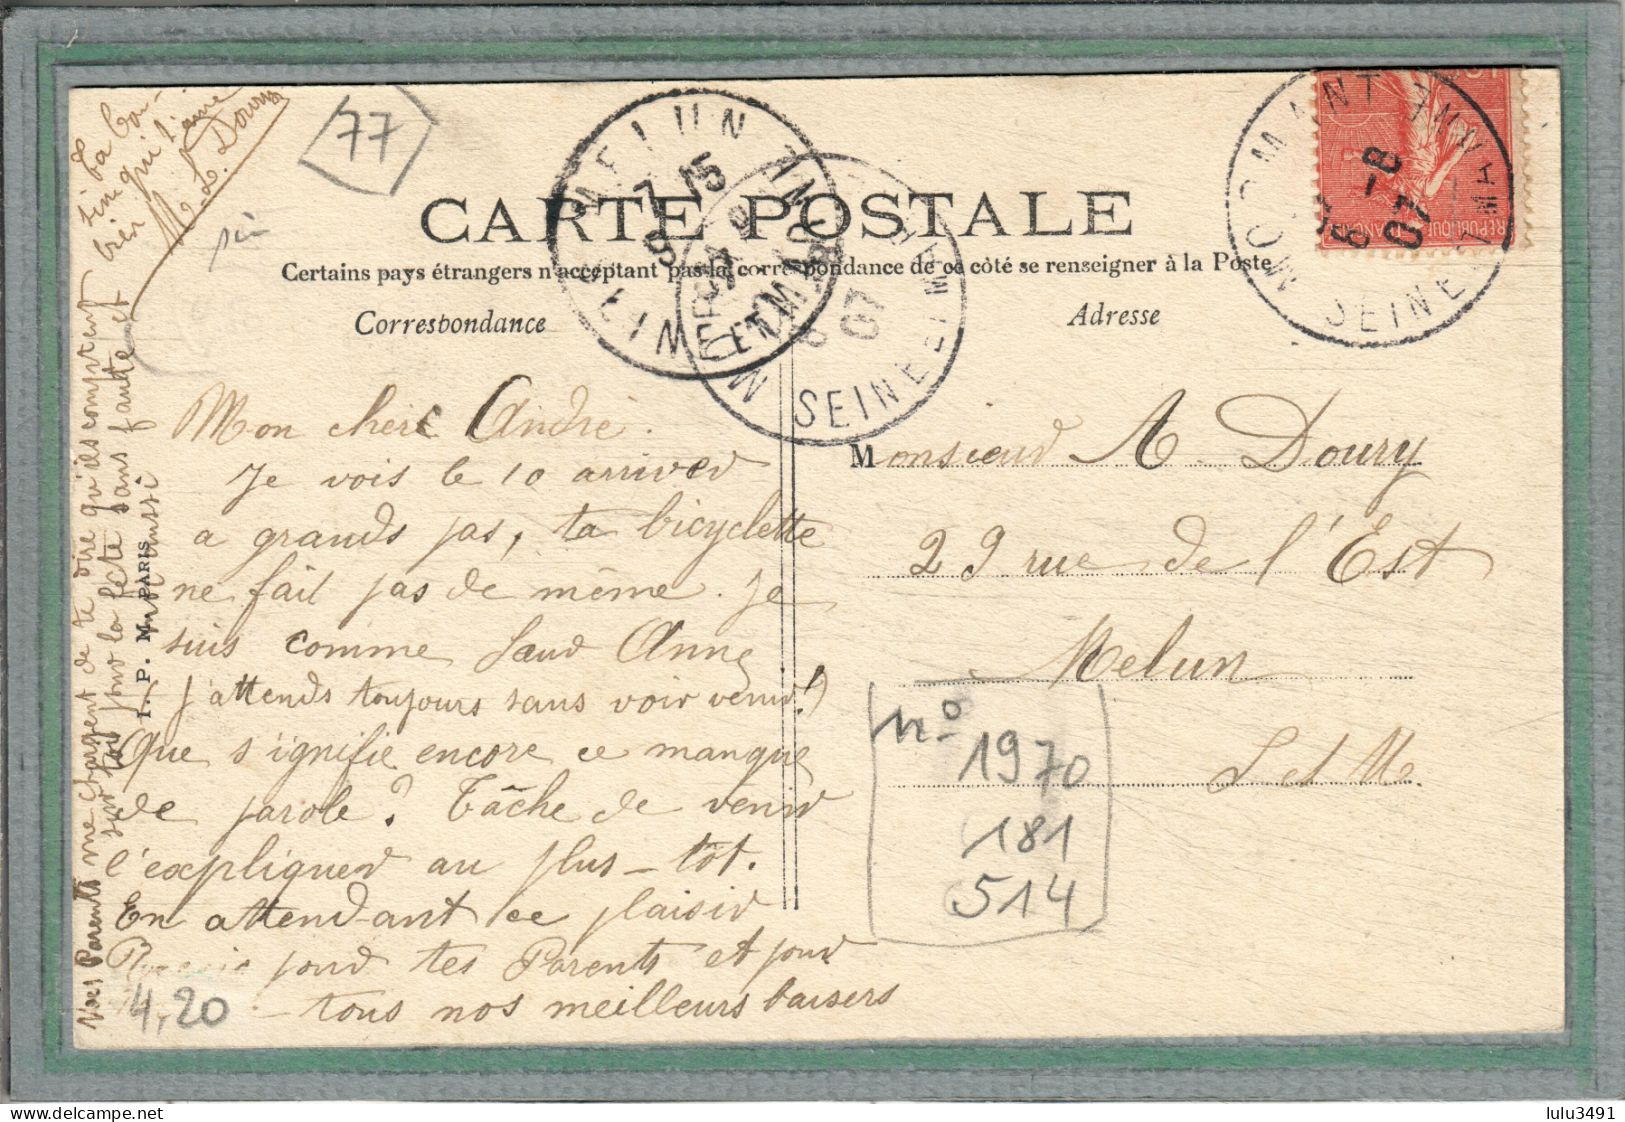 CARTE POSTALE
Certains pays étrangers n'acceptent pas la correspondance de ce côté se renseigner à la Poste
Correspondance
Adresse
Mon cher André.
Je vois le 10 arriver
a grands pas, ta bicyclette
ne fait pas de même. Je
suis comme Sœur Anne
j'attends toujours sans voir venir!
Que signifie encore ce manque
de parole? Tâche de venir
l'expliquer au plus-tôt.
En attendant ce plaisir
pour tes Parents et pour
tous nos meilleurs baisers
Mes Parents me chargent de te dire qu'ils comptent
sur toi pour la fête sans faute et
moi aussi
Ta Cou-
sine qui t'aime
bien
M. L. Doury
I. P. M. PARIS
Monsieur A Doury
29 rue de l'Est
Melun
S et M.
MORMANT
SEINE ET MARNE
8 -8
07
MELUN
7 15
9
SEINE ET MARNE
07
77
n° 1970
181
514
4,20
REPUBLIQUE FRANÇAISE
lulu3491